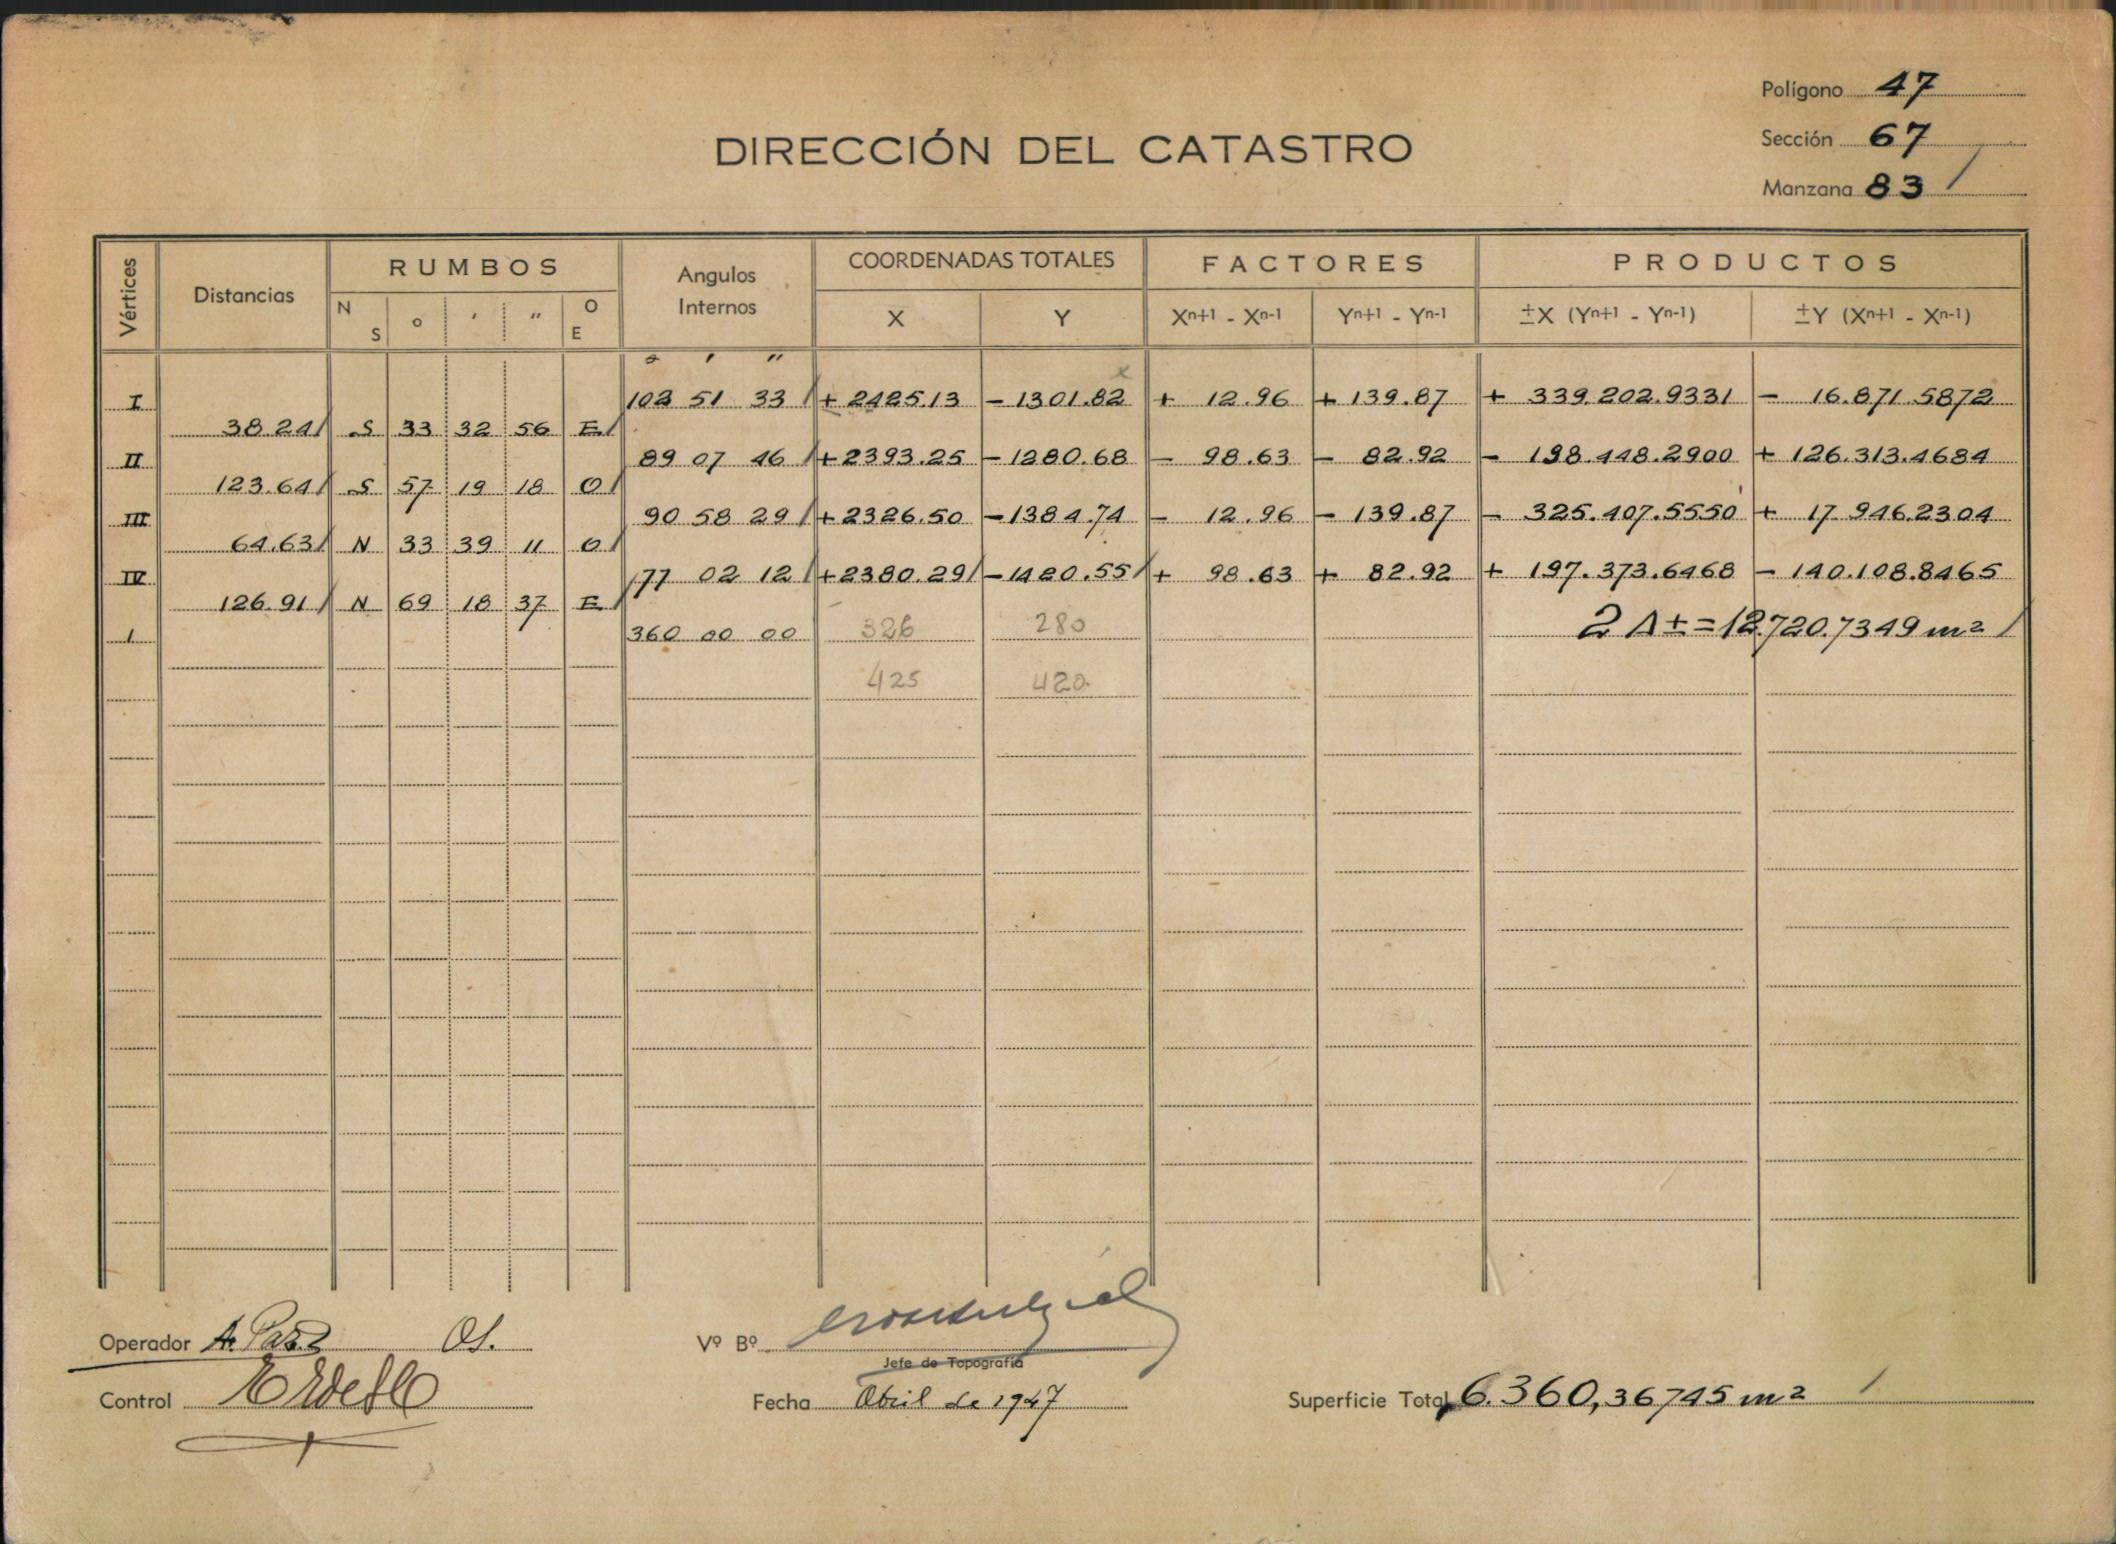 Polígono 47
Sección 67
Manzana 83 /
DIRECCIÓN DEL CATASTRO
Vértices Distancias RUMBOS Angulos Internos COORDENADAS TOTALES FACTORES PRODUCTOS
N S ° ' " O E X Y Xn+1 - Xn-1 Yn+1 - Yn-1 ±X (Yn+1 - Yn-1) ±Y (Xn+1 - Xn-1)
° ' "
I 102 51 33 / + 2425.13 - 1301.82 + 12.96 + 139.87 + 339.202.9331 - 16.871.5872
38.24 / S 33 32 56 E /
II 89 07 46 / + 2393.25 - 1280.68 - 98.63 - 82.92 - 198.448.2900 + 126.313.4684
123.64 / S 57 19 18 O /
III 90 58 29 / + 2326.50 - 1384.74 - 12.96 - 139.87 - 325.407.5550 + 17.946.2304
64.63 / N 33 39 11 O /
IV 77 02 12 / + 2380.29 / - 1420.55 / + 98.63 + 82.92 + 197.373.6468 - 140.108.8465
126.91 / N 69 18 37 E /
I 360 00 00 326 280 2 Δ ± = 12.720.7349 m² /
425 420
Operador
Vº Bº
Jefe de Topografía
Control
Fecha Abril de 1947
Superficie Total 6.360,36745 m² /